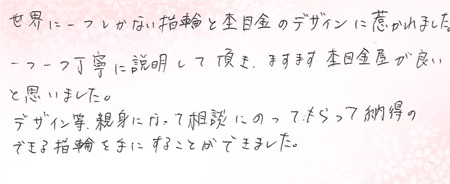 世界に一つしかない指輪と杢目金のデザインに惹かれました。
一つ一つ丁寧に説明して頂き、ますます杢目金屋が良い
と思いました。
デザイン等、親身になって相談にのってもらって納得の
できる指輪を手にすることができました。